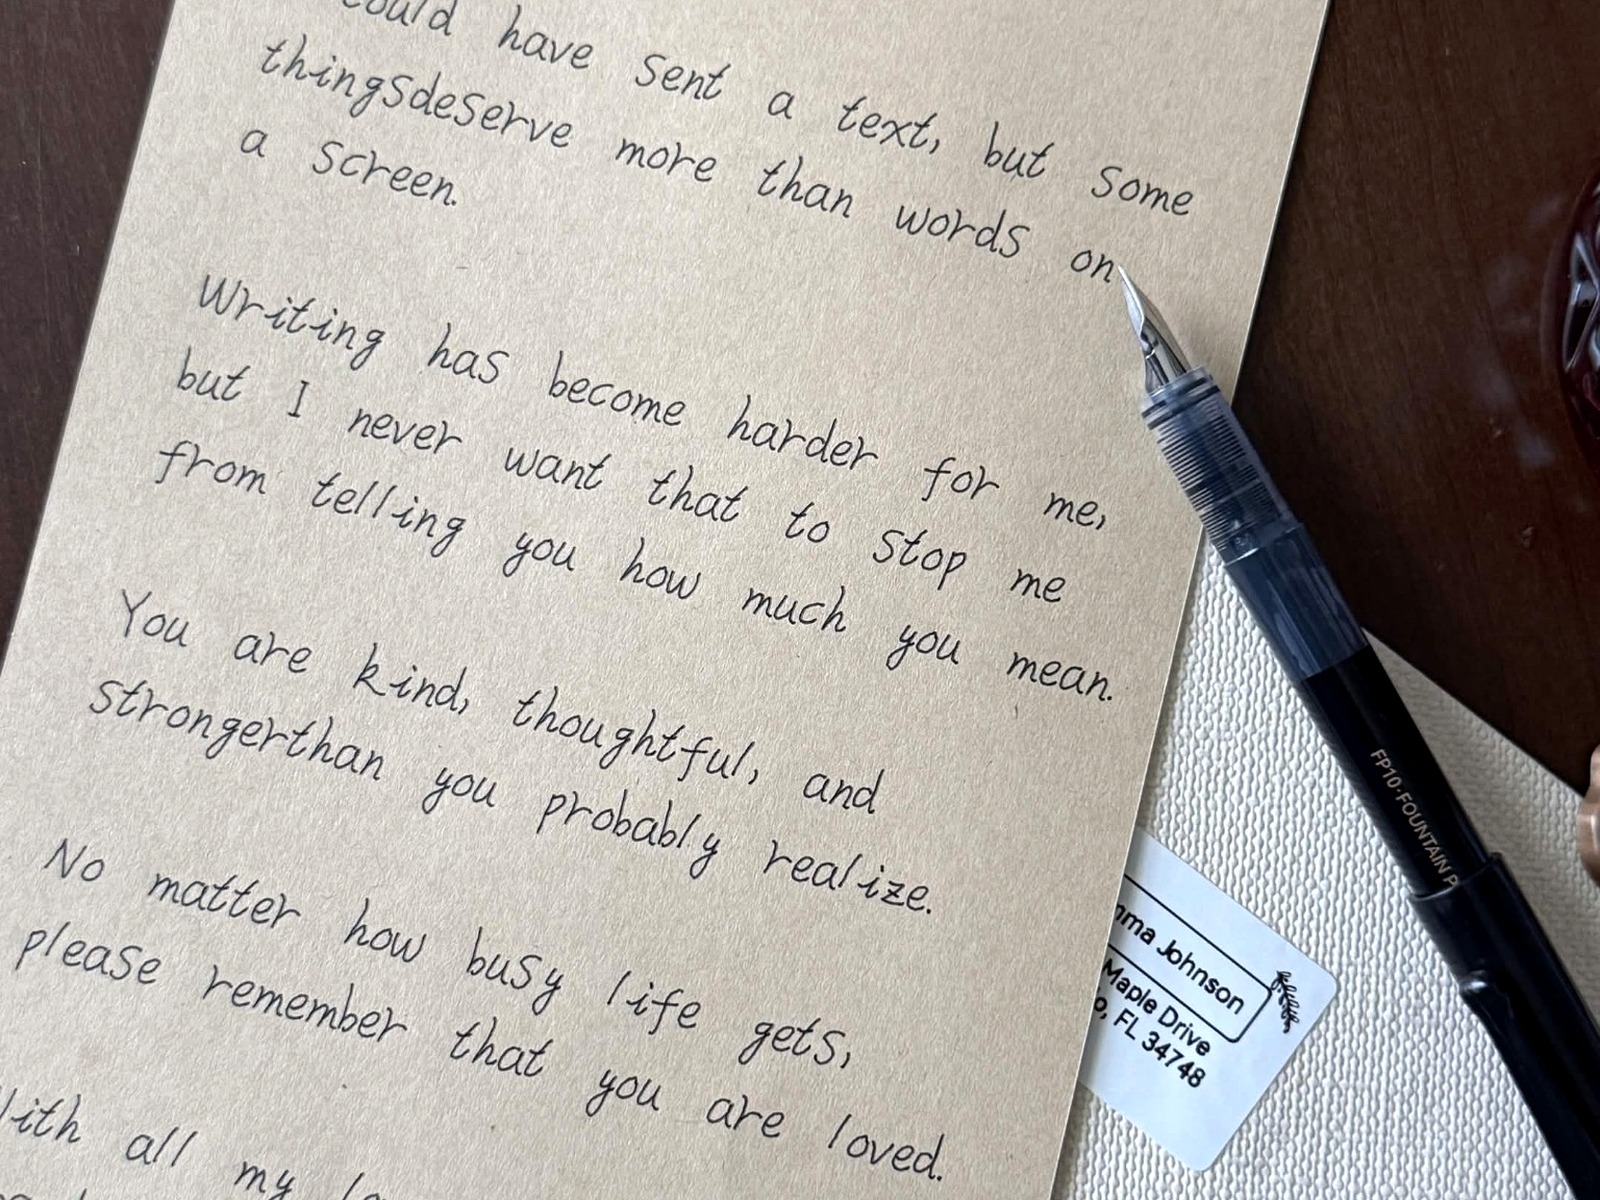 could have sent a text, but some
thingsdeserve more than words on
a screen.
Writing has become harder for me,
but I never want that to stop me
from telling you how much you mean.
You are kind, thoughtful, and
strongerthan you probably realize.
No matter how busy life gets,
please remember that you are loved.
With all my
FP10·FOUNTAIN P
mma Johnson
Maple Drive
o, FL 34748